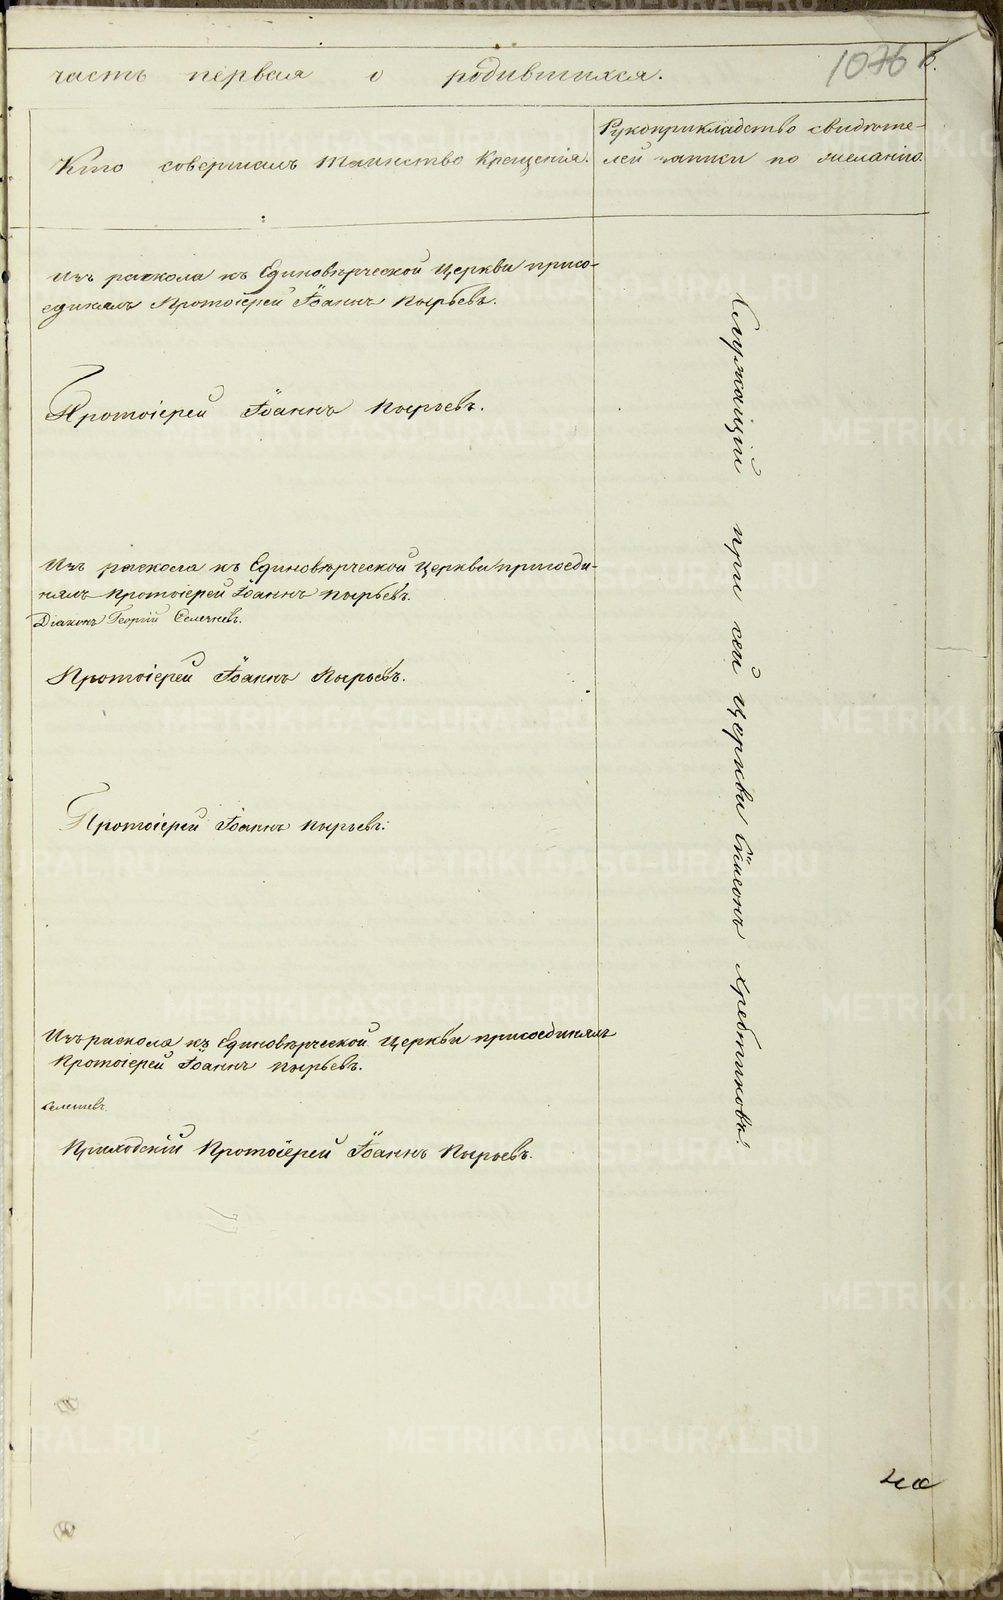 часть первая о родившихся.
1076 б.
Кто совершалъ таинство крещенія.
Рукоприкладство свидѣте-
лей записи по желанію.
Изъ раскола къ Единовѣрческой Церкви присо-
единялъ Протоіерей Іоаннъ Пырьевъ.
Протоіерей Іоаннъ Пырьевъ.
Изъ раскола къ Единовѣрческой Церкви присоеди-
нялъ Протоіерей Іоаннъ Пырьевъ.
Діаконъ Георгій
Протоіерей Іоаннъ Пырьевъ.
Протоіерей Іоаннъ Пырьевъ.
Изъ раскола къ Единовѣрческой Церкви присоединялъ
Протоіерей Іоаннъ Пырьевъ.
Приходскій Протоіерей Іоаннъ Пырьевъ.
Служащій при сей церкви Сѵмеонъ Хребтиковъ.
METRIKI.GASO-URAL.RU